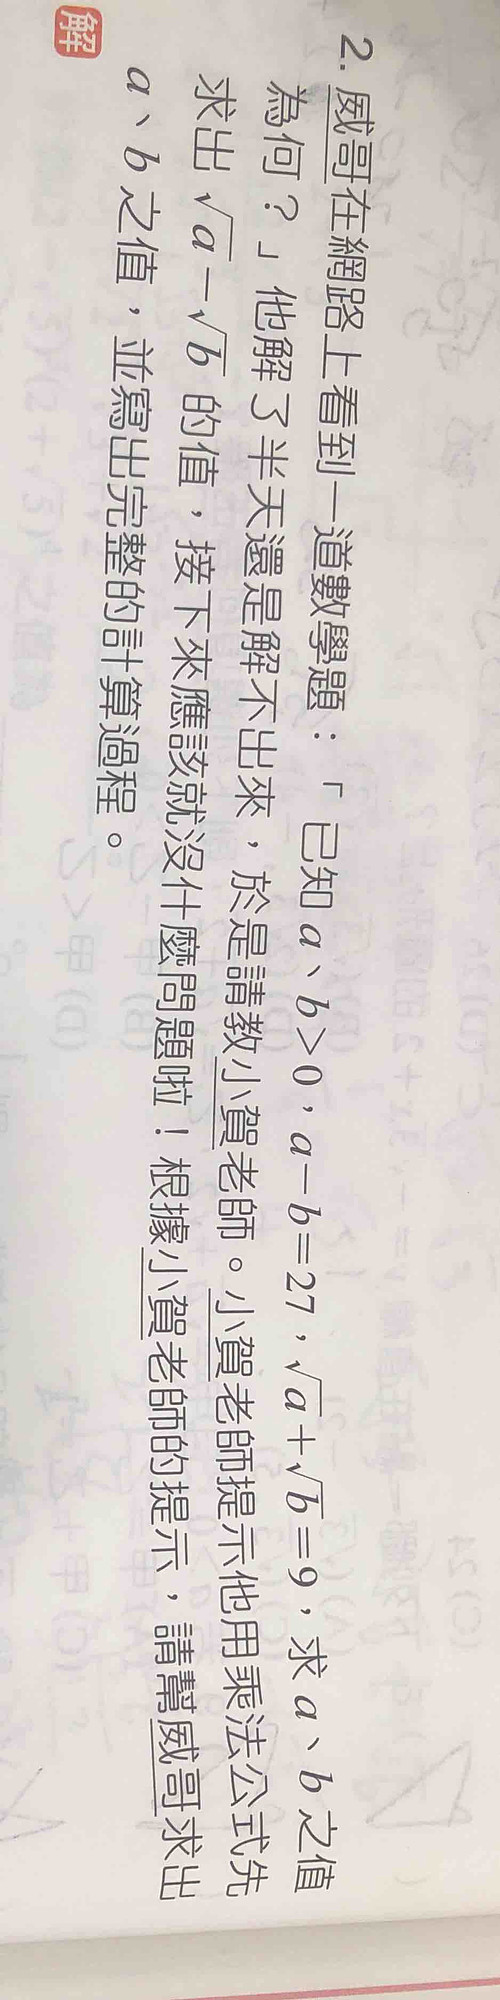 2. 威哥在網路上看到一道數學題：「已知 a、b>0，a－b=27，√a＋√b=9，求 a、b 之值
為何？」他解了半天還是解不出來，於是請教小賀老師。小賀老師提示他用乘法公式先
求出 √a－√b 的值，接下來應該就沒什麼問題啦！根據小賀老師的提示，請幫威哥求出
a、b 之值，並寫出完整的計算過程。
解